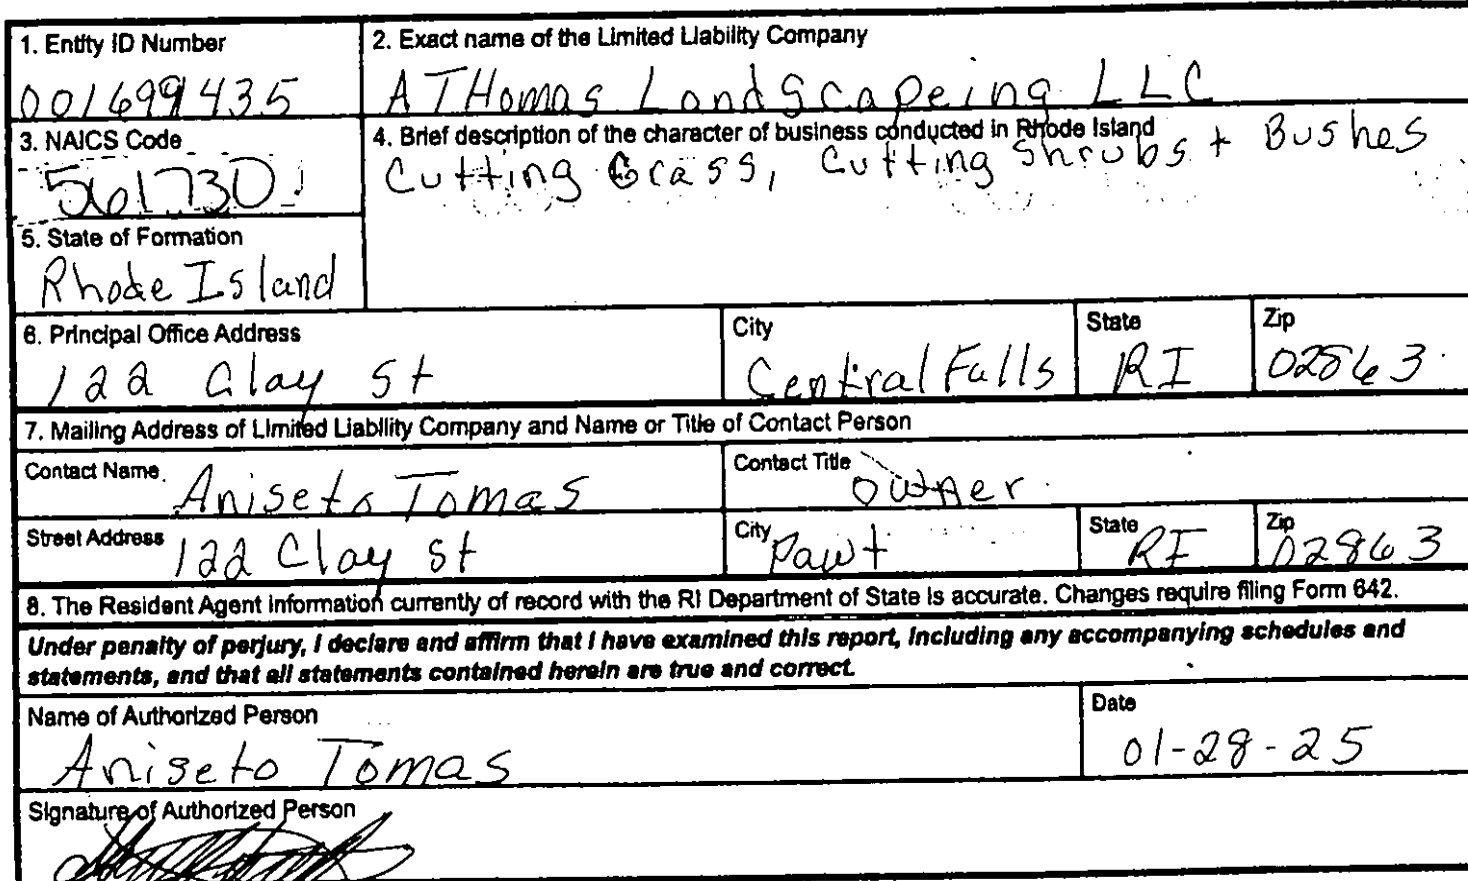 1. Entity ID Number
001699435
2. Exact name of the Limited Liability Company
ATHomas Landscapeing LLC
3. NAICS Code
561730
4. Brief description of the character of business conducted in Rhode Island
Cutting Grass, Cutting Shrubs + Bushes
5. State of Formation
Rhode Island
6. Principal Office Address
122 Clay St
City
Central Falls
State
RI
Zip
02863
7. Mailing Address of Limited Liability Company and Name or Title of Contact Person
Contact Name
Aniseto Tomas
Contact Title
owner
Street Address
122 Clay St
City
Pawt
State
RI
Zip
02863
8. The Resident Agent information currently of record with the RI Department of State is accurate. Changes require filing Form 642.
Under penalty of perjury, I declare and affirm that I have examined this report, including any accompanying schedules and
statements, and that all statements contained herein are true and correct.
Name of Authorized Person
Aniseto Tomas
Date
01-28-25
Signature of Authorized Person